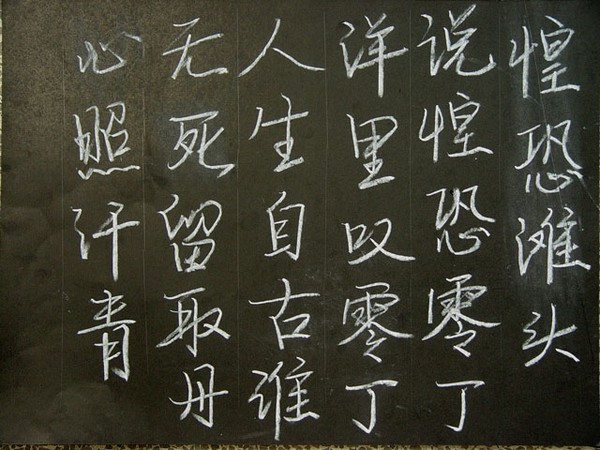 惶恐滩头
说惶恐零丁
洋里叹零丁
人生自古谁
无死留取丹
心照汗青